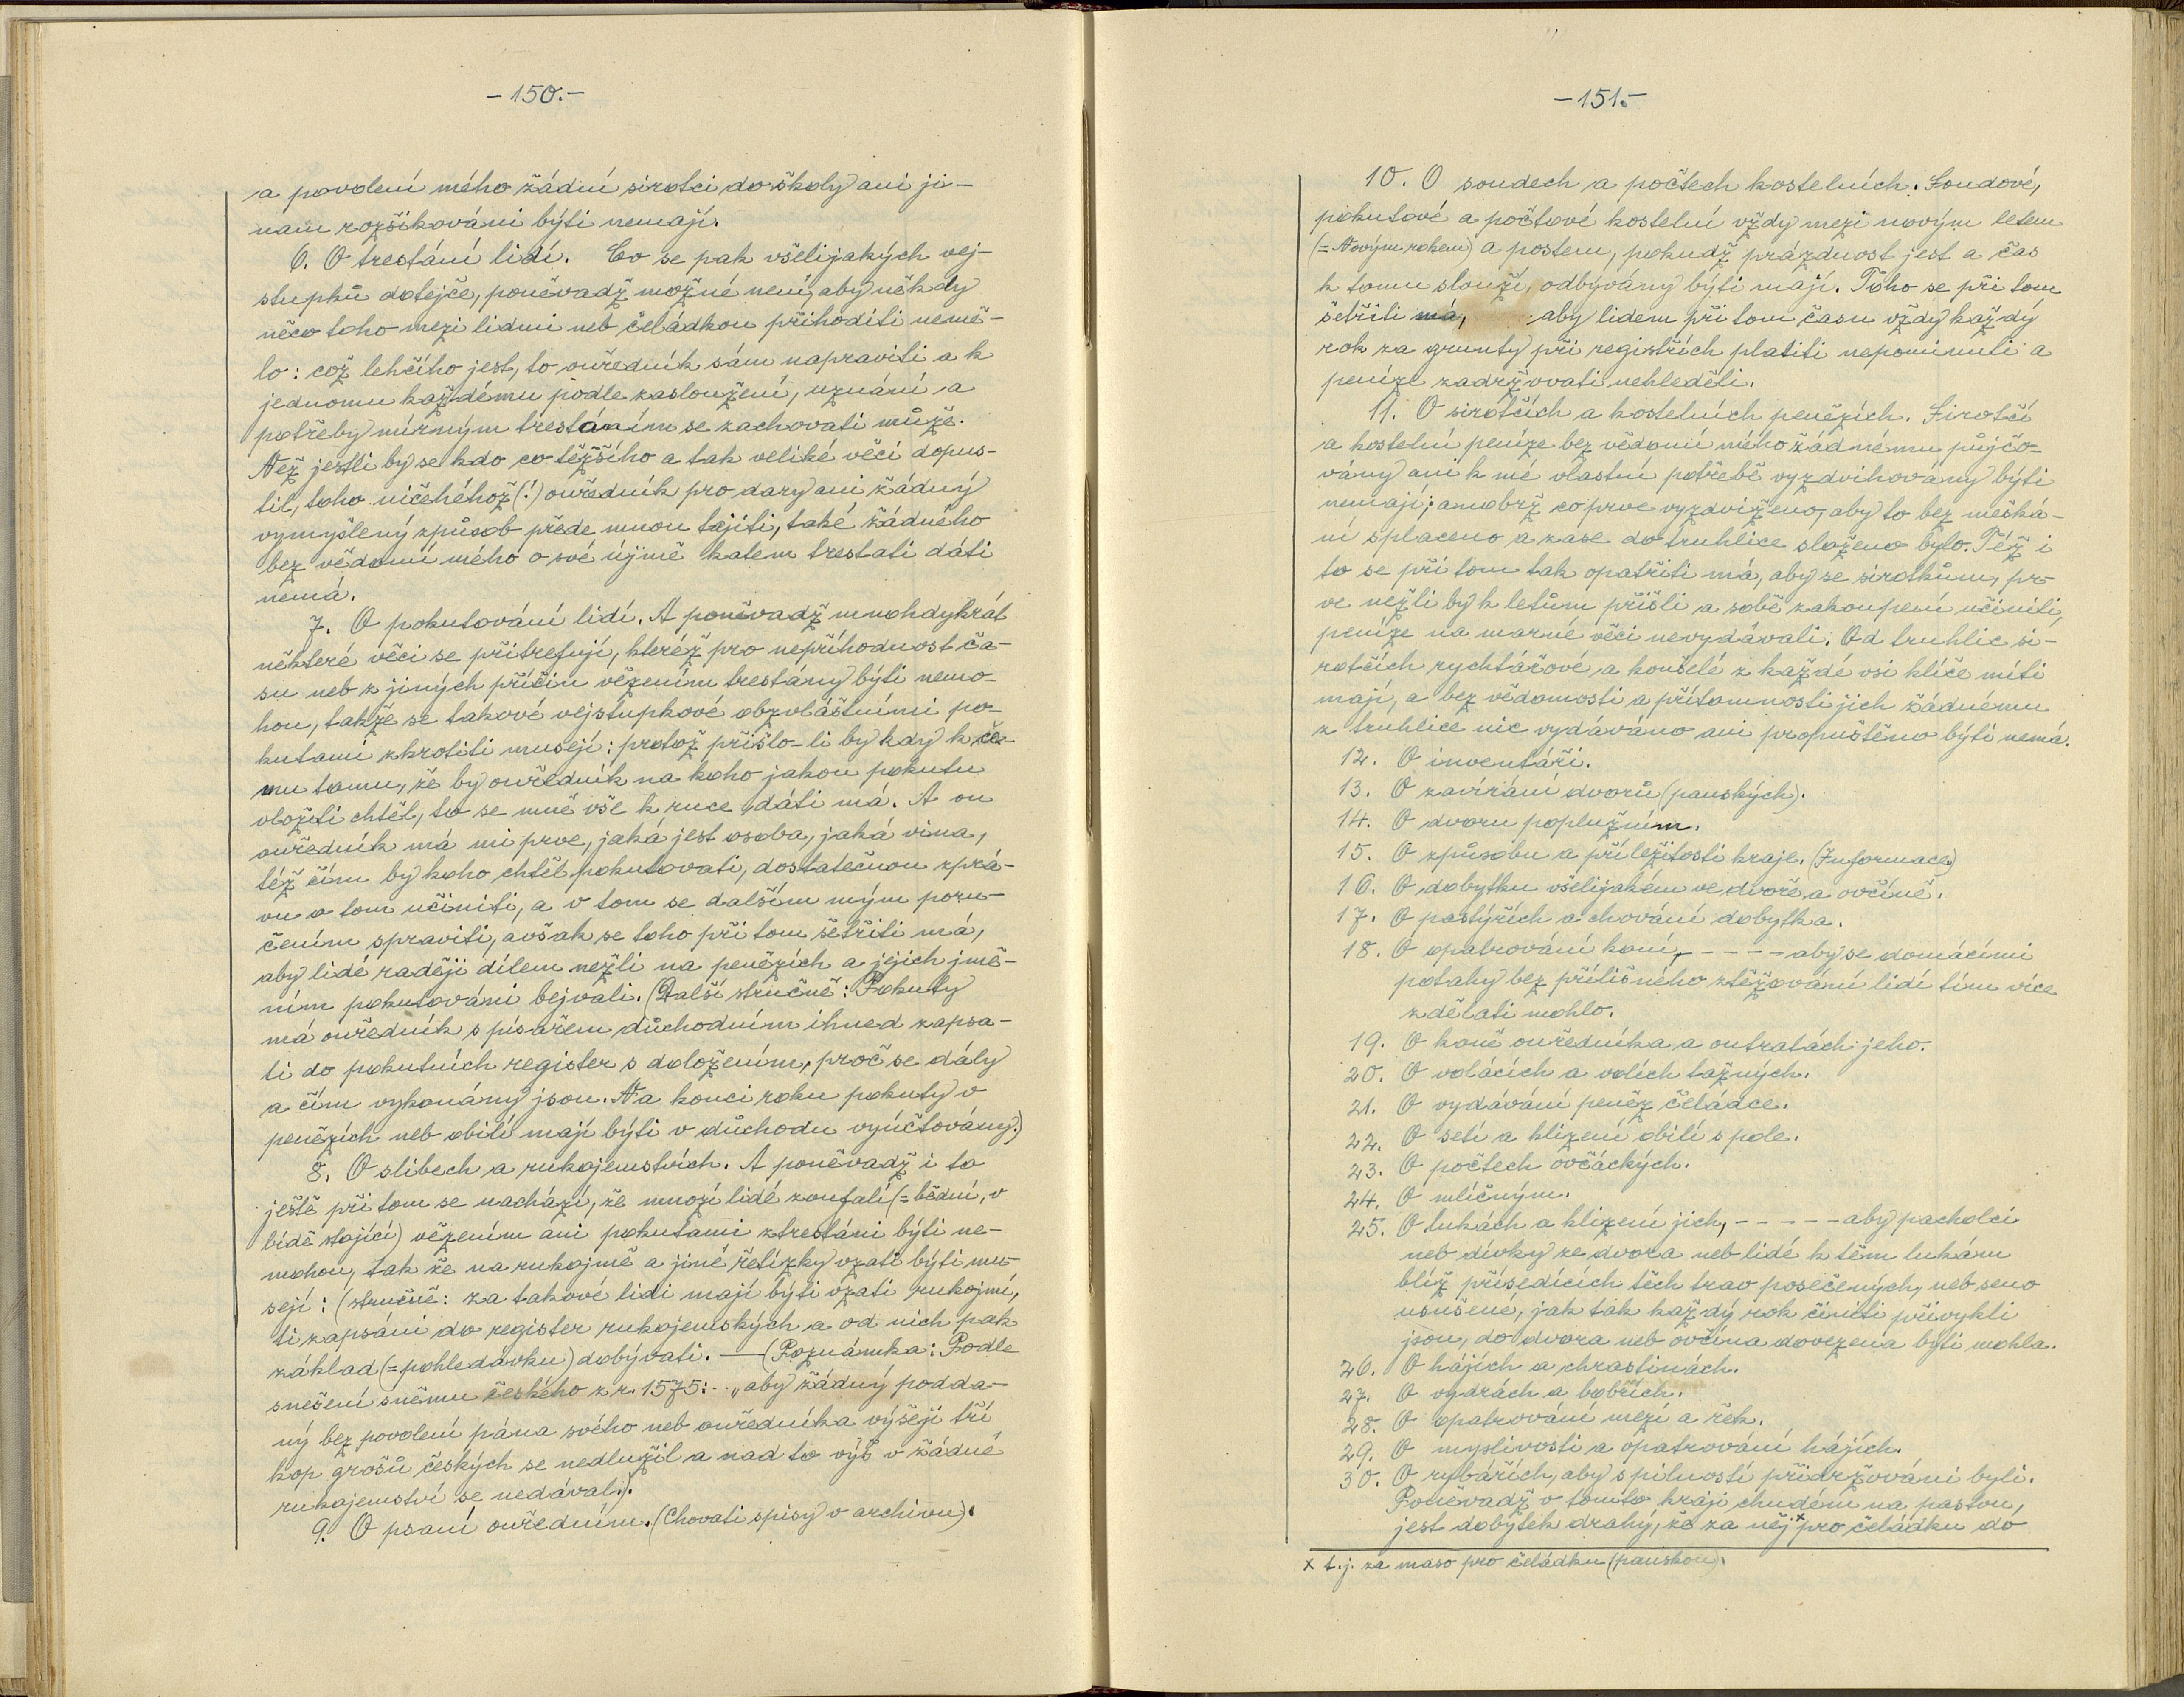 -150.-
a povolení mého žádní sirotci do školy ani ji-
nam rozšikováni býti nemají.
6. O trestání lidí. Co se pak všelijakých vej-
stupků dotejče, poněvadž možné není, aby někdy
něco toho mezi lidmi neb čeládkou přihoditi nemě-
lo: což lehčího jest, to ouředník sám napraviti a k
jednomu každému podle zasloužení, uznání a
potřeby mírným trestáním se zachovati může.
Než jestli by se kdo co těžšího a tak veliké věci dopus-
til, toho ničehéhož (!) ouředník pro dary ani žádný
vymyšlený způsob přede mnou tajiti, také žádného
bez vědomí mého o své újmě katem trestati dáti
nemá.
7. O pokutování lidí. A poněvadž mnohdykrát
některé věci se přitrefují, kteréž pro nepříhodnost ča-
su neb z jiných příčin vězením trestány býti nemo-
hou, takže se takové vejstupkové obzvláštními po-
kutami zkrotiti musejí: protož přišlo-li by kdy k če-
mu tomu, že by ouředník na koho jakou pokutu
vložiti chtěl, to se mně vše k ruce dáti má. A on
ouředník má mi prve, jaká jest osoba, jaká vina,
též čím by koho chtěl pokutovati, dostatečnou zprá-
vu o tom učiniti, a v tom se dalším mým poru-
čením spraviti, avšak se toho při tom šetřiti má,
aby lidé raději dílem nežli na penězích a jejich jmě-
ním pokutováni bejvali. (Další stručně: Pokuty
má ouředník s písařem důchodním ihned zapsa-
ti do pokutních register s doložením, proč se dály
a čím vykonány jsou. Na konci roku pokuty v
penězích neb obilí mají býti v důchodu vyúčtovány.)
8. O slibech a rukojemstvích. A poněvadž i to
ještě při tom se nachází, že mnozí lidé zoufalí (= bědní, v
bídě stojící) vězením ani pokutami ztrestáni býti ne-
mohou, tak že na rukojmě a jiné řetízky vzati býti mu-
sejí: (stručně: za takové lidi mají býti vzati rukojmí,
ti zapsáni do register rukojemských a od nich pak
základ (= pohledávku) dobývati. — (Poznámka: Podle
snešení sněmu českého z r. 1575: .. „aby žádný podda-
ný bez povolení pána svého neb ouředníka výšeji tří
kop grošů českých se nedlužil a nad to výš v žádné
rukojemství se nedával.).
9. O psaní ouředním. (Chovati spisy v archivu).
-151.-
10. O soudech a počtech kostelních. Soudové,
pokutové a počtové kostelní vždy mezi novým letem
(= Novým rokem) a postem, pokudž prázdnost jest a čas
k tomu slouží, odbývány býti mají. Toho se při tom
šetřiti má, aby lidem při tom času vždy každý
rok za grunty při registřích platiti nepominuli a
peníze zadržovati nehleděli.
11. O sirotčích a kostelních penězích. Sirotčí
a kostelní peníze bez vědomí mého žádnému půjčo-
vány ani k mé vlastní potřebě vyzdvihovány býti
nemají; anobrž co prve vyzdviženo, aby to bez mešká-
ní splaceno a zase do truhlice složeno bylo. Též i
to se při tom tak opatřiti má, aby se sirotkům, pr-
ve nežli by k letům přišli a sobě zakoupení učinili,
peníze na marné věci nevydávali. Od truhlic si-
rotčích rychtářové a konšelé z každé vsi klíče míti
mají, a bez vědomosti a přítomnosti jich žádnému
z truhlice nic vydáváno ani propuštěno býti nemá.
12. O inventáři.
13. O zavírání dvorů (panských).
14. O dvoru poplužním.
15. O způsobu a příležitosti kraje. (Informace)
16. O dobytku všelijakém ve dvoře a ovčíně.
17. O pastýřích a chování dobytka.
18. O opatrování koní, - - - - aby se domácími
potahy bez přílišného ztěžování lidí tím více
zdělati mohlo.
19. O koně ouředníka a outratách jeho.
20. O volácích a volích tažných.
21. O vydávání peněz čeládce.
22. O setí a klizení obilí s pole.
23. O počtech ovčáckých.
24. O mlíčným.
25. O lukách a klizení jich, - - - - - aby pacholci
neb dívky ze dvora neb lidé k těm lukám
blíž přísedících těch trav posečených, neb seno
usušené, jak tak každý rok činiti přivykli
jsou, do dvora neb ovčína dovezena býti mohla.
26. O hájích a chrastinách.
27. O vydrách a bobřích.
28. O opatrování mezí a řek.
29. O myslivosti a opatrování hájích.
30. O rybářích, aby s pilností přidržováni byli.
Poněvadž v tomto kraji chudém na pastvu,
jest dobytek drahý, že za něj x pro čeládku do
x t.j. za maso pro čeládku (panskou).